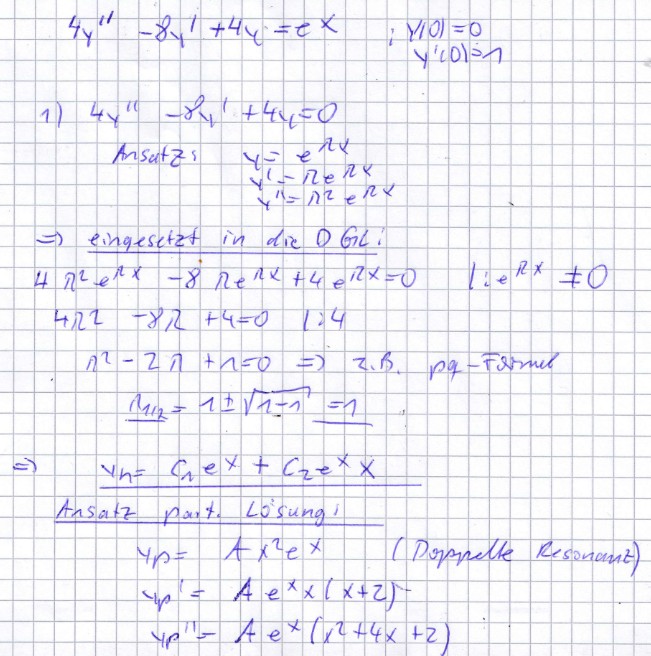 4y'' -8y' +4y = e^x ; y(0)=0
y'(0)=1
1) 4y'' -8y' +4y=0
Ansatz: y= e^{λx}
y'= λe^{λx}
y''= λ² e^{λx}
=> eingesetzt in die DGL:
4 λ² e^{λx} -8 λe^{λx} +4 e^{λx}=0 |:e^{λx} ≠0
4λ² -8λ +4=0 |:4
λ² -2λ +1=0 => z.B. pq-Formel
λ_{1/2} = 1±√(1-1) =1
=> y_h= C₁ e^x + C₂ e^x x
Ansatz part. Lösung:
y_p= A x² e^x (Doppelte Resonanz)
y_p'= A e^x x(x+2)
y_p''= A e^x (x²+4x+2)